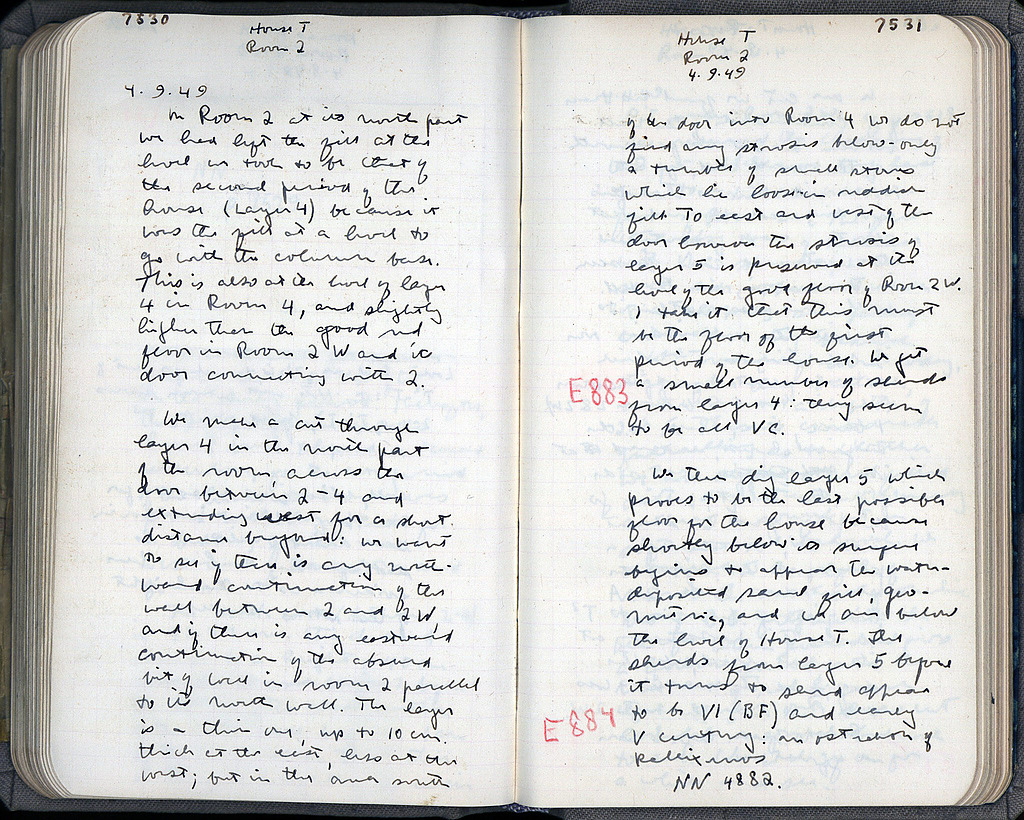 7530
House T
Room 2
4.9.49
In Room 2 at its north part
we had left the fill at the
level we took to be that of
the second period of the
house (Layer 4) because it
was the fill at a level to
go with the column base.
This is also at the level of layer
4 in Room 4, and slightly
higher than the good red
floor in Room 2 W and its
door connecting with 2.
We make a cut through
layer 4 in the north part
of the room, across the
door between 2-4 and
extending west for a short
distance beyond: we want
to see if there is any north-
ward continuation of the
wall between 2 and 2 W,
and if there is any eastward
continuation of the absurd
bit of wall in room 2 parallel
to its north wall. The layer
is a thin one, up to 10 cm.
thick at the east, less at the
west; but in the area south
7531
House T
Room 2
4.9.49
of the door into Room 4 we do not
find any strosis below - only
a number of small stones
which lie loose in reddish
fill. To east and west of the
door however the strosis of
layer 5 is preserved at the
level of the good floor of Room 2 W.
I take it that this must
be the floor of the first
period of the house. We get
E883
a small number of sherds
from layer 4: they seem
to be all VC.
We then dig layer 5 which
proves to be the last possible
floor for the house because
shortly below its surface
begins to appear the water-
deposited sand fill, geo-
metric, and we are below
the level of House T. The
sherds from layer 5 before
it turns to sand appear
E884
to be VI (BF) and early
V century: an ostrakon of
Kallixenos
NN 4882.